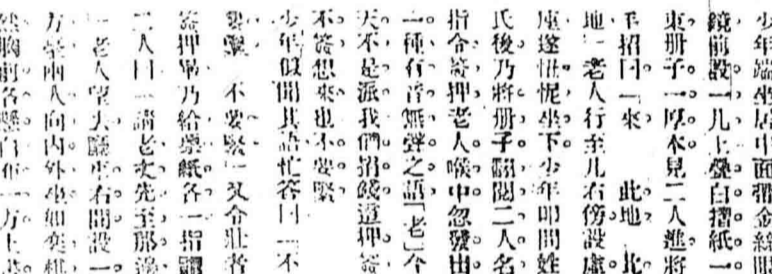 少年端坐居中面彈金絲眼
鏡前設一几上疊白摺紙一
束册子一厚本見二人進將
手招曰「來　此地　此
地」老人行至几右傍設虛
座遂忸怩坐下少年叩問姓
氏後乃將册子翻閱二人名
指令簽押老人喉中忽發出
一種有音無聲之語「老」个
天不是派我們招餞道押簽
不簽想來也不要緊
少年似聞其語忙答曰「不
要緊　不要緊」又令壯者
簽押畢乃給舉紙各一指謂
二人曰「請老丈先至那邊
老人望大廳東右間設一
方桌兩人向內外坐如奕棋
然胸前各懸白布一方上